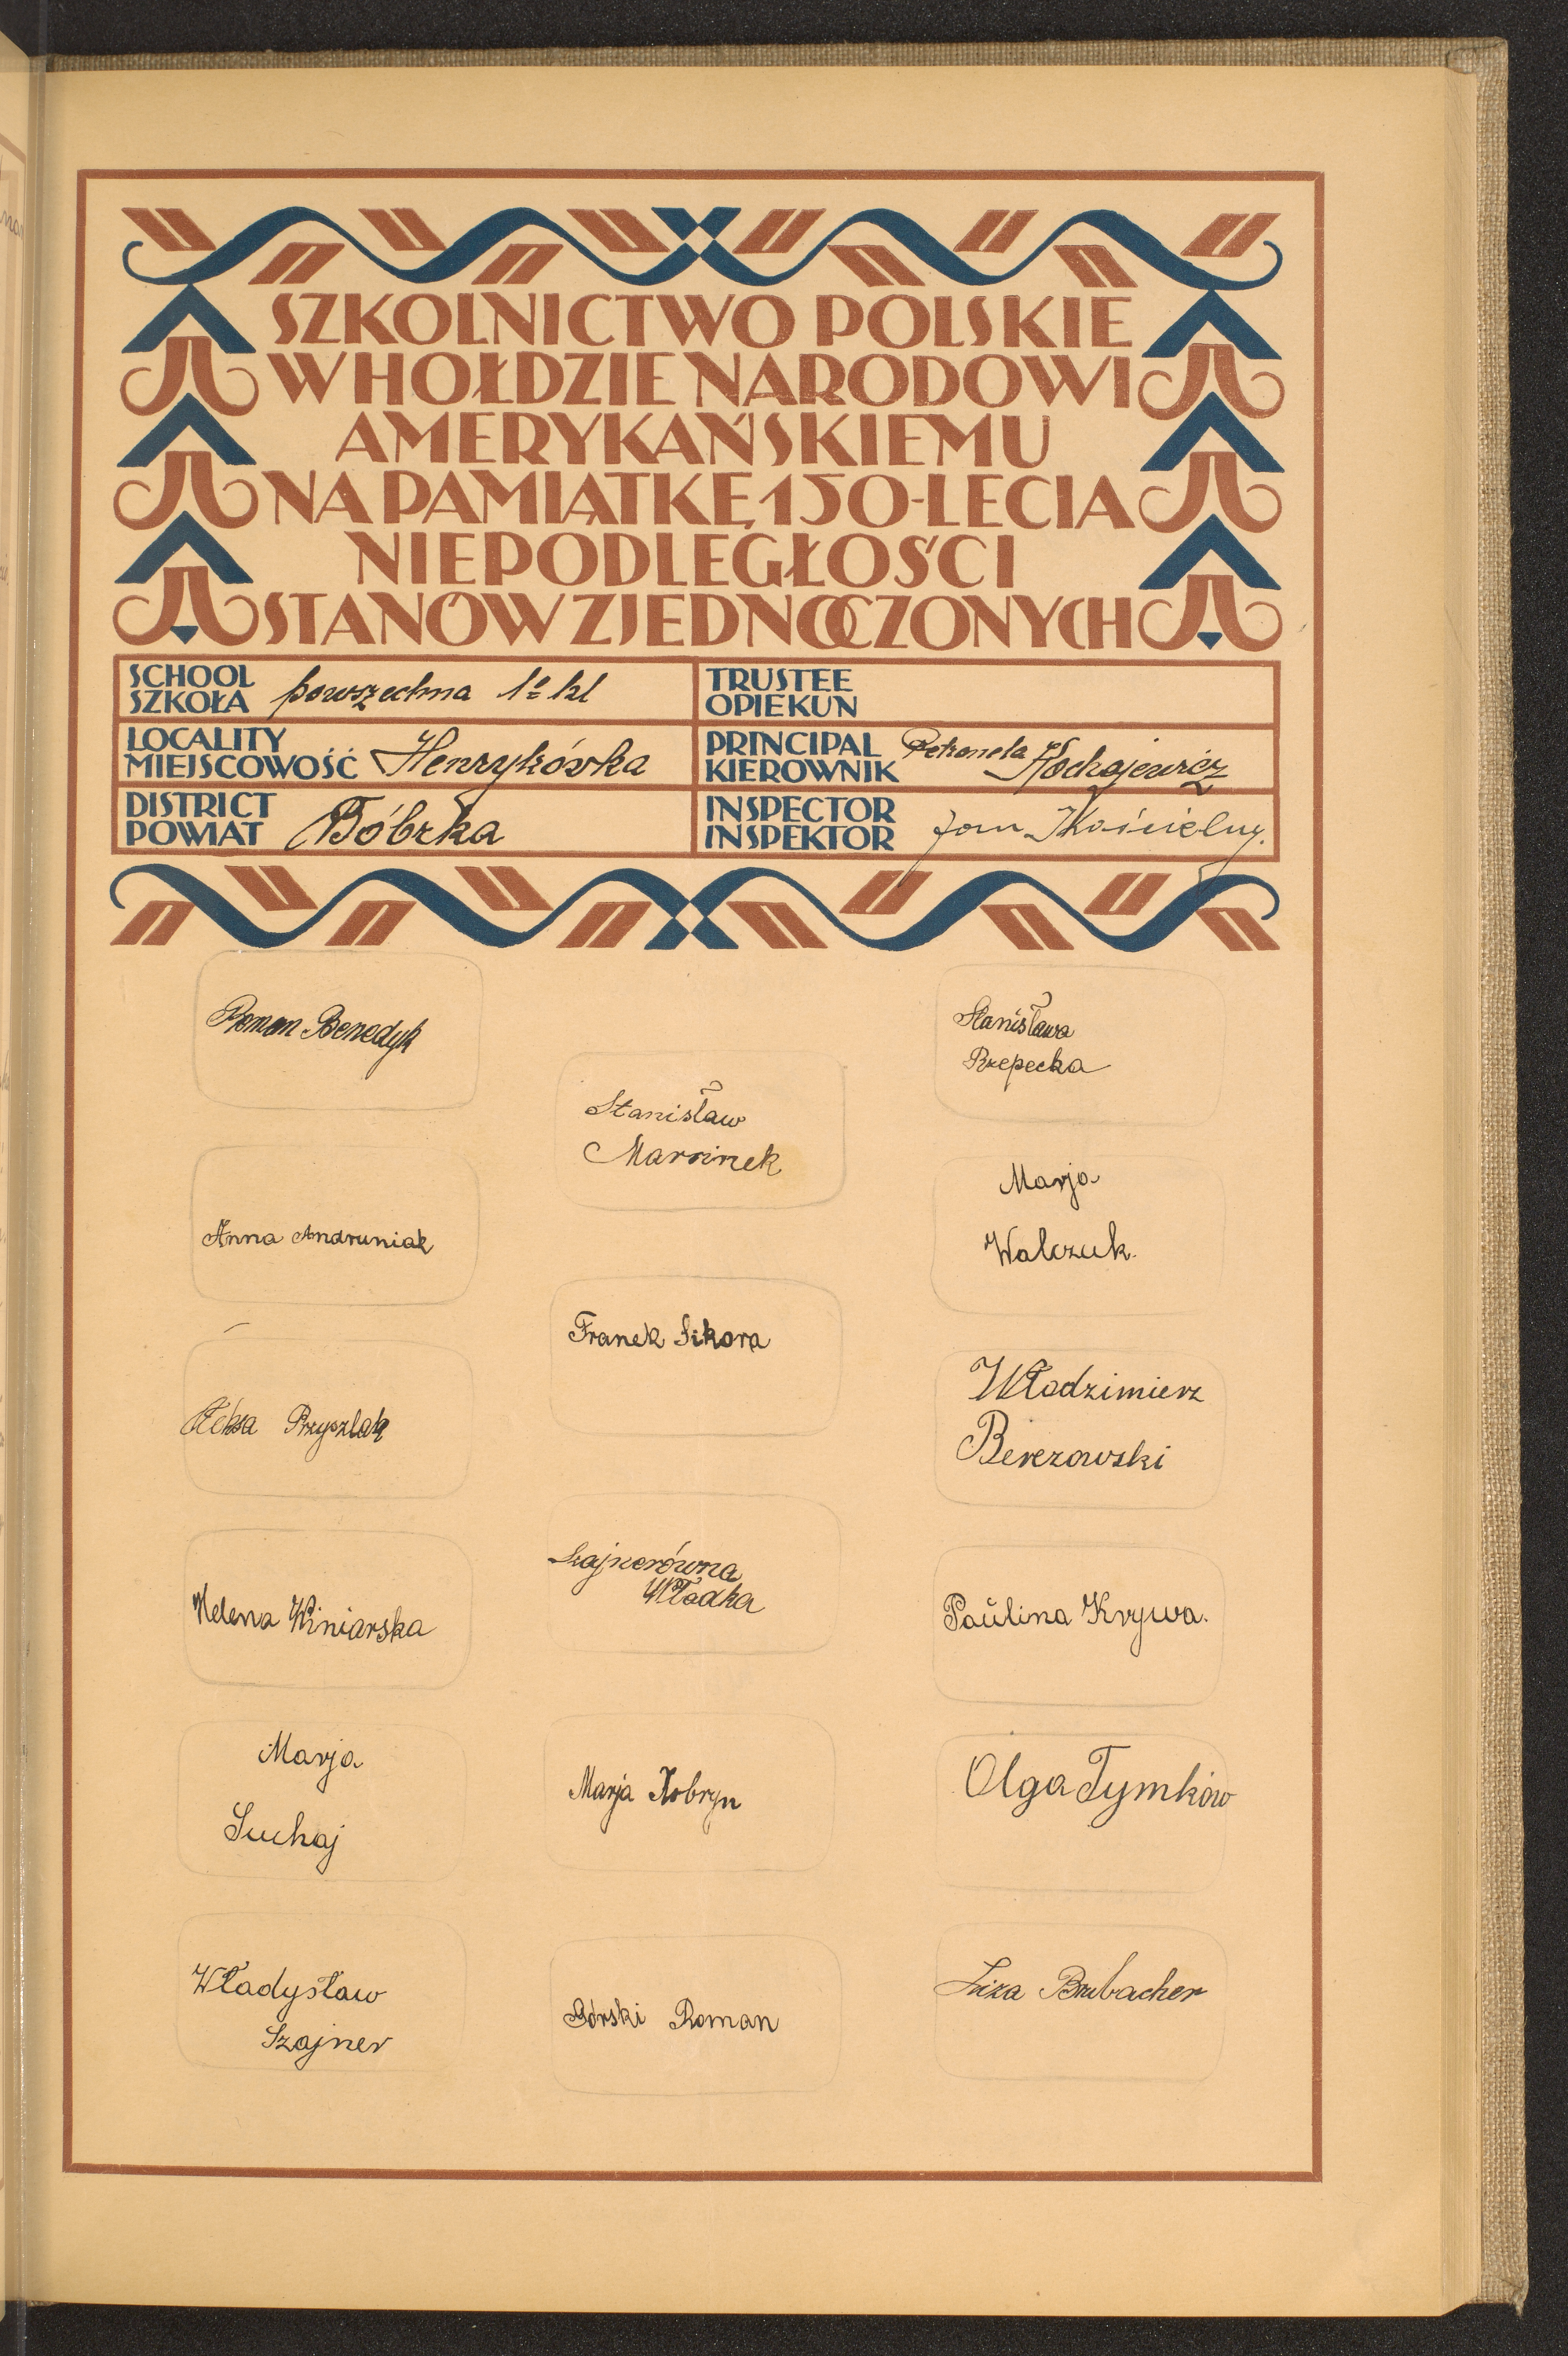 SZKOLNICTWO POLSKIE
W HOŁDZIE NARODOWI
AMERYKAŃSKIEMU
NA PAMIĄTKĘ 150-LECIA
NIEPODLEGŁOŚCI
STANÓW ZJEDNOCZONYCH
SCHOOL
SZKOŁA powszechna 1º kl
TRUSTEE
OPIEKUN
LOCALITY
MIEJSCOWOŚĆ Henrykówka
PRINCIPAL
KIEROWNIK Petronela Kochajewicz
DISTRICT
POWIAT Bóbrka
INSPECTOR
INSPEKTOR Jan Kościelny.
Roman Benedyk
Anna Andruniak
Ołeksa Przyszlak
Helena Winiarska
Marja
Suchaj
Władysław
Szajner
Stanisław
Marcinek
Franek Sikora
Szajnerówna
Włodka
Marja Kobryn
Górski Roman
Stanisława
Rzepecka
Marja
Walczuk.
Włodzimierz
Berezowski
Paŭlina Krywa.
Olga Tymków
Liza Brubacher